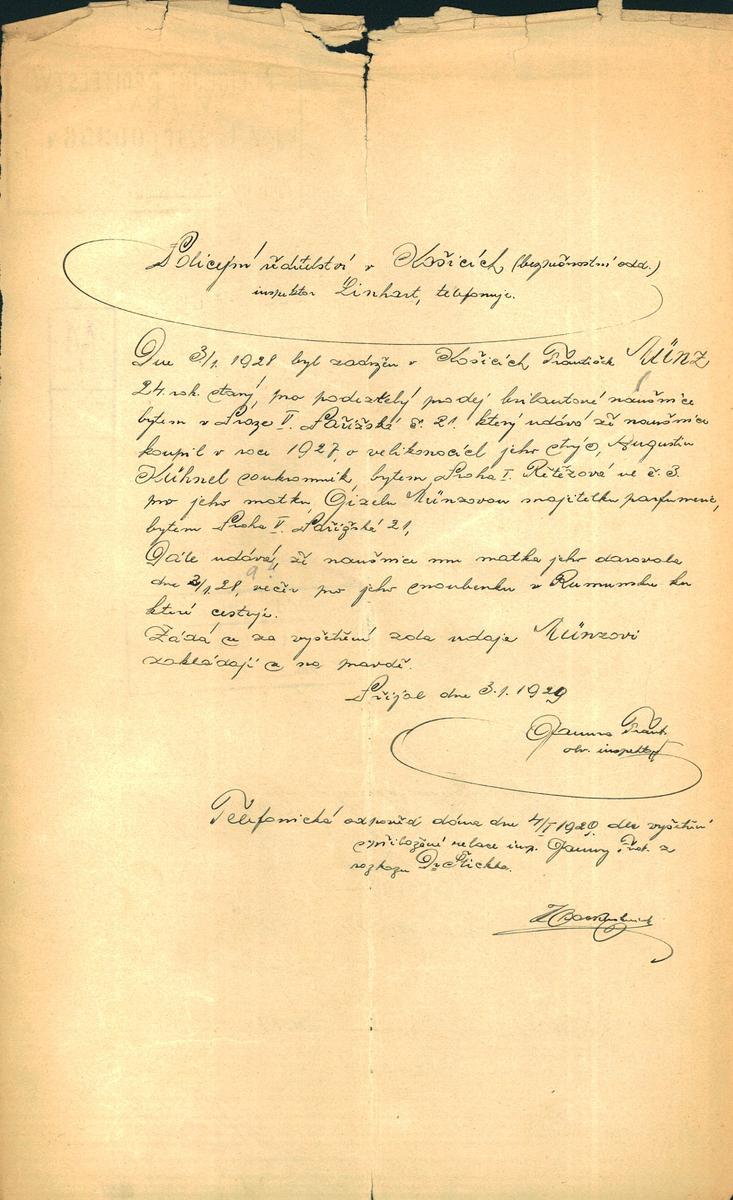 Policejní ředitelství v Košicích (bezpečnostní odd.)
inspektor Linhart, telefonuje.
Dne 3/1. 1928 byl zadržen v Košicích František Münz
24. rok. starý, pro podezřelý prodej briliantové naušnice
bytem v Praze V. Pařížská č. 21. který udává že naušnice
koupil v roce 1927, o velikonocích jeho strýc, Augustin
Kühnel soukromník, bytem, Praha I. Řetězová ul. č. 3.
pro jeho matku Gizelu Münzovou majitelku parfumerie,
bytem Praha V. Pařížská 21,
Dále udává, že naušnice mu matka jeho darovala
dne 2/1. 28, večer pro jeho snoubenku v Rumunsku ku
které cestuje.
Žádá se za vyšetření zda udaje Münzovi
zakládají se na pravdě.
Přijal dne 3.1. 1929
Frant.
obv. inspektor
Telefonická odpověď dána dne 4/I 1929. dle vyšetření
a přiložené relace insp. Frant. z
rozkazu Dr Flicka.